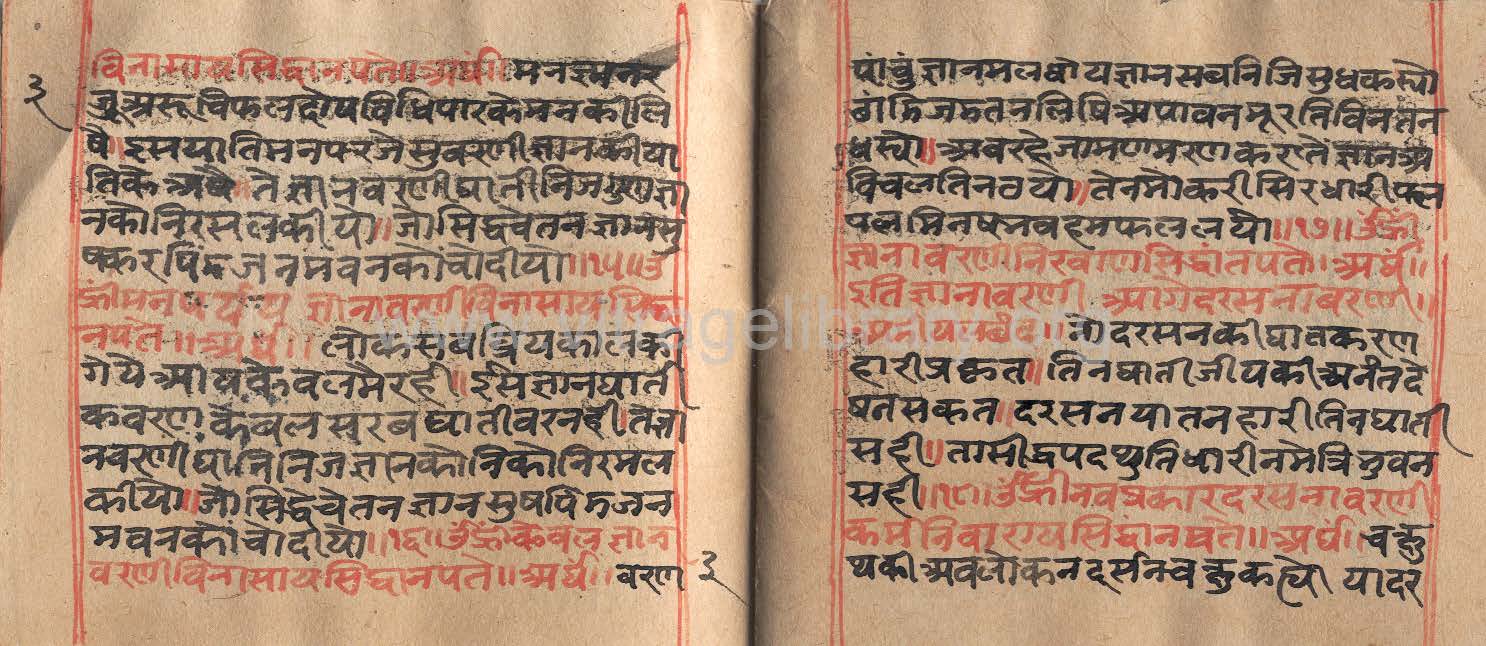 विनासाय सिद्धानपते॥अर्घं॥मनइमनर
जू अरू विफलदोय विधि पारके मन की लि
षै॥इस याति मन पर जै सुवरणी ज्ञान की या
ति कै अषै॥ते ज्ञानवरणी घाती निज गुण ज्ञा
नकौ निरमल कीयो॥जो सिद्ध चेतन ज्ञान सु
जनम वनकौं चोदीयो॥१५॥उं
ह्रीं मन पर्यय ज्ञानावरणी विनासाय सिद्धा
नपते॥अर्घं॥लोक सब त्रियकाल की
केवल मै रही॥ईस ज्ञान घाती
कवरण केवल सरब घाती वरनही॥ते ज्ञा
नवरणी घानि निज ज्ञानकौ निकौ निरमल
कीयो॥जो सिद्ध चेतन ज्ञान सुष पिं जन
मवनकौं चोदीयो॥१६॥उंह्रीं केवल ज्ञान
वरणी विनासाय सिद्धानपते॥अर्घ॥वरण
३
३
पांचुं ज्ञानमल षोय ज्ञान सब निज सुध कस्यो
पावन मूरति विनतन
धस्यो॥अब रहे जामण मरण करतै ज्ञान अ
विचल तिन ठयो॥तेन मो करी सिर धारी फल
वहम फल लयो॥१७॥उंह्रीं
ज्ञैनावरणी निरवाण सिद्धांतपते॥अर्घं॥
इति ज्ञानावरणी आगे दरसनावरणी॥
जो दरसन की घात करण
हारी प्रकृत॥तिन घाती जीय की अनंत द
षन सकत॥दरसन यातनहारी तिन घाती
सही॥ता सीद्ध पद थुति धारी नमै त्रिभुवन
सही॥१८॥उंह्रीं नव प्रकार दरसनावरणी
कर्म निवारणाय सिद्धांनपते॥अर्घं॥चक्षु
थकी अवलोकन दर्सन चक्षु कह्यो या दर
www.vitragelibrary.org